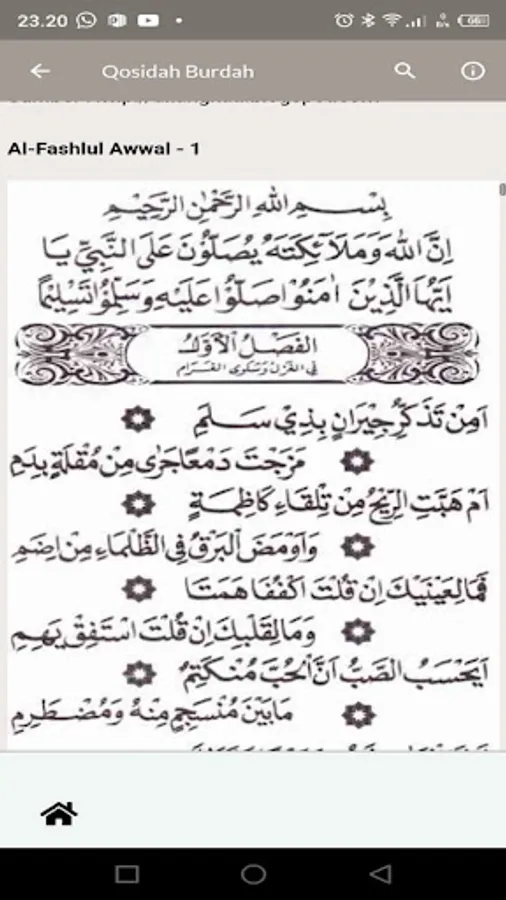 23.20
66
Qosidah Burdah
Al-Fashlul Awwal - 1
بِسْــــمِ اللهِ الرَّحْمٰنِ الرَّحِيْمِ
اِنَّ اللهَ وَمَلَآئِكَتَهُ يُصَلُّوْنَ عَلَى النَّبِيِّ يَا
اَيُّهَا الَّذِيْنَ اٰمَنُوْا صَلُّوْا عَلَيْهِ وَسَلِّمُوْا تَسْلِيْمًا
الفَصْلُ الْاَوَّلُ
اَمِنْ تَذَكُّرِ جِيْرَانٍ بِذِيْ سَــلَمِ
مَزَجْتَ دَمْعًا جَرٰى مِنْ مُقْلَةٍ بِدَمِ
اَمْ هَبَّتِ الرِّيْحُ مِنْ تِلْقَاءِ كَاظِمَةٍ
وَاَوْمَضَ الْبَرْقُ فِى الظَّلْمَاءِ مِنْ اِضَمِ
فَمَا لِعَيْنَيْكَ اِنْ قُلْتَ اكْفُفَا هَمَتَا
وَمَا لِقَلْبِكَ اِنْ قُلْتَ اسْتَفِقْ يَهِمِ
اَيَحْسَبُ الصَّبُّ اَنَّ الْحُبَّ مُنْكَتِمٌ
مَا بَيْنَ مُنْسَجِمٍ مِنْهُ وَمُضْطَــرِمِ